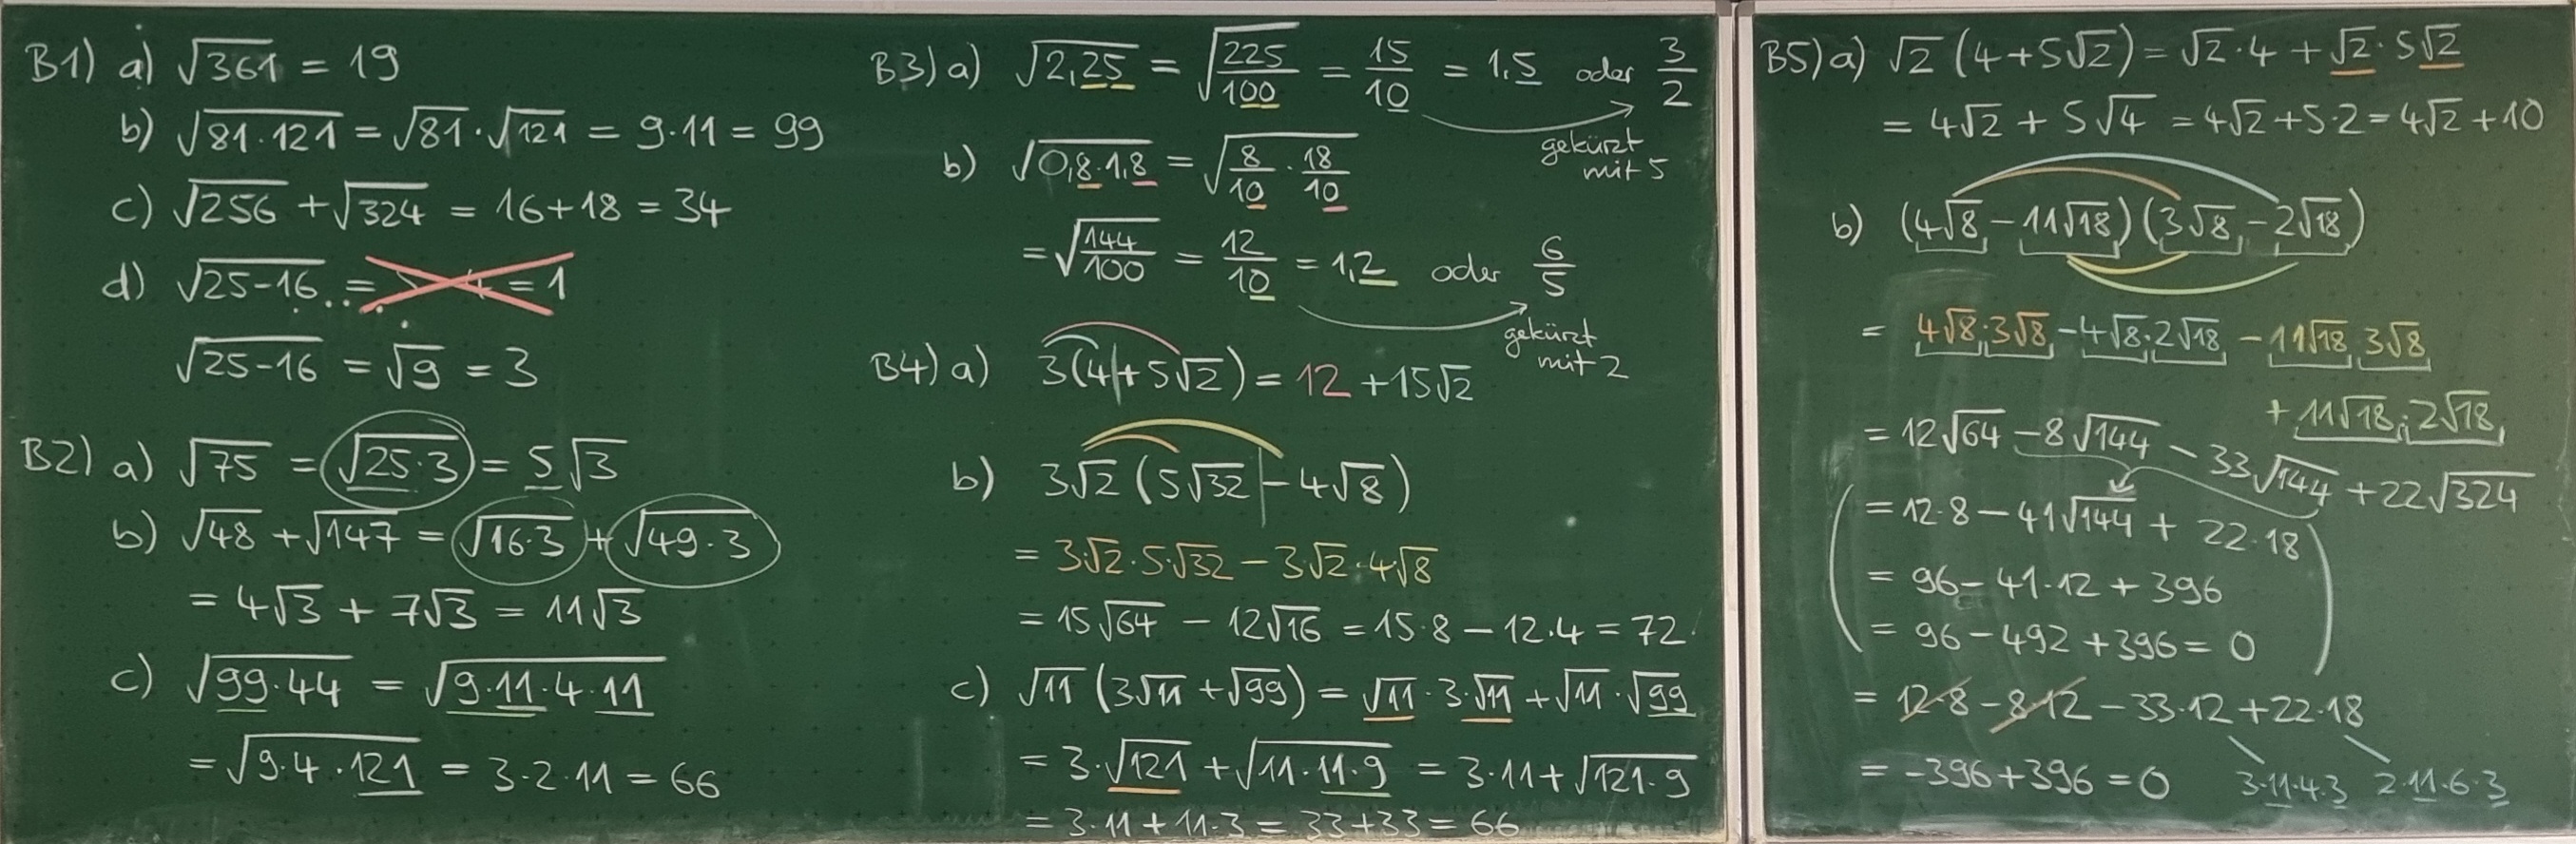 B1) a) √361 = 19
b) √81·121 = √81·√121 = 9·11 = 99
c) √256 + √324 = 16+18 = 34
d) √25-16 = = 1
√25-16 = √9 = 3
B2) a) √75 = √25·3 = 5√3
b) √48 + √147 = √16·3 + √49·3
= 4√3 + 7√3 = 11√3
c) √99·44 = √9·11·4·11
= √9·4·121 = 3·2·11 = 66
B3) a) √2,25 = √225/100 = 15/10 = 1,5 oder 3/2
gekürzt
mit 5
b) √0,8·1,8 = √8/10 · 18/10
= √144/100 = 12/10 = 1,2 oder 6/5
gekürzt
mit 2
B4) a) 3(4+5√2) = 12 + 15√2
b) 3√2 (5√32 - 4√8)
= 3·√2·5·√32 - 3√2·4√8
= 15√64 - 12√16 = 15·8 - 12·4 = 72
c) √11 (3√11 + √99) = √11·3·√11 + √11·√99
= 3·√121 + √11·11·9 = 3·11 + √121·9
= 3·11 + 11·3 = 33+33 = 66
B5) a) √2 (4+5√2) = √2·4 + √2·5√2
= 4√2 + 5√4 = 4√2 + 5·2 = 4√2 + 10
b) (4√8 - 11√18) (3√8 - 2√18)
= 4√8·3√8 - 4√8·2√18 - 11√18·3√8
+ 11√18·2√18
= 12√64 - 8√144 - 33√144 + 22√324
= 12·8 - 41√144 + 22·18
= 96 - 41·12 + 396
= 96 - 492 + 396 = 0
= 12·8 - 8·12 - 33·12 + 22·18
= -396 + 396 = 0
3·11·4·3 2·11·6·3